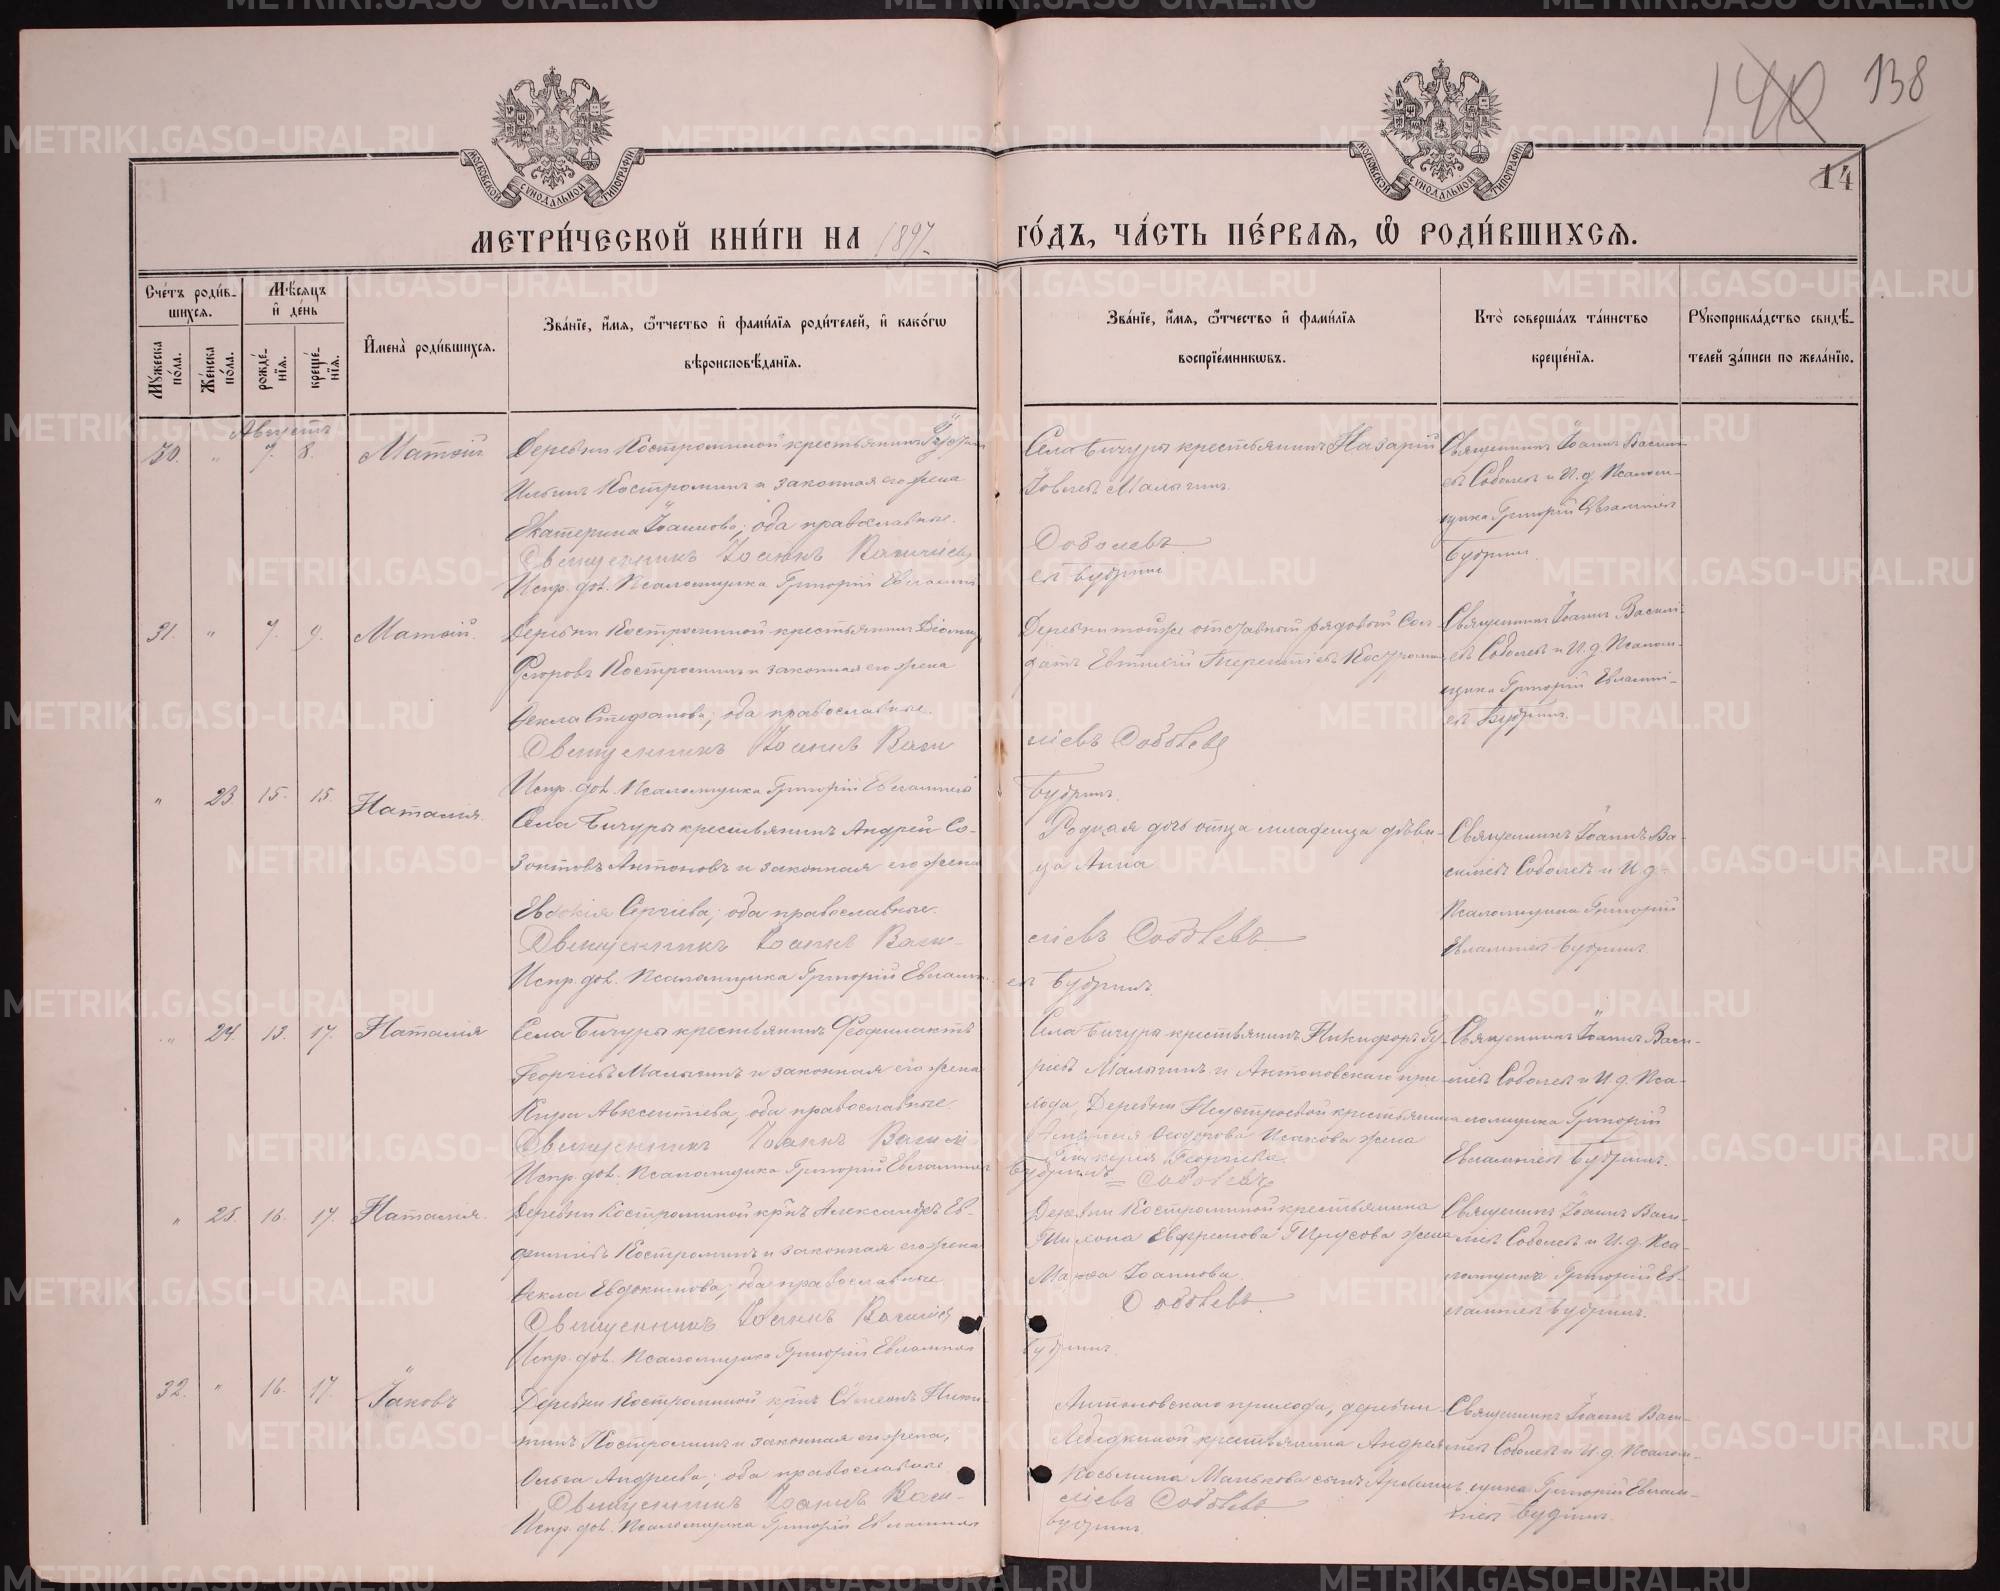 140 138
14
МОСКОВСКОЙ СѴНОДАЛЬНОЙ ТИПОГРАФІИ
МОСКОВСКОЙ СѴНОДАЛЬНОЙ ТИПОГРАФІИ
МЕТРИ́ЧЕСКОЙ КНИ́ГИ НА 1897 ГО́ДЪ, ЧА́СТЬ ПЕ́РВАѦ, Ѡ҆ РОДИ́ВШИХСѦ.
Сче́тъ роди́вшихсѧ.
Мꙋ́жеска по́ла.
Же́нска по́ла.
Мѣ́сѧцъ и҆ де́нь
рожде́нїѧ.
креще́нїѧ.
И҆мена̀ роди́вшихсѧ.
Зва́нїе, и҆́мѧ, ѻ҆́тчество и҆ фами́лїѧ роди́телей, и҆ како́гѡ
вѣроисповѣ́данїѧ.
Зва́нїе, и҆́мѧ, ѻ҆́тчество и҆ фами́лїѧ
воспрїе́мникѡвъ.
Кто̀ соверша́лъ та́инство
креще́нїѧ.
Рꙋкоприкла́дство свидѣ́-
телей за́писи по жела́нїю.
Августъ
30. " 7. 8. Матѳій
Деревни Костроминой крестьянинъ
Ильинъ Костроминъ и законная его жена
Екатерина Іоаннова; оба православные.
Священникъ Іоаннъ Василіев
Испр. дол. Псаломщика Григорій Евлампіев
Села Бичуры крестьянинъ Назарій
Іовлевъ Малыгинъ.
Соболевъ
въ Бубринъ
Священникъ Іоаннъ Василі-
евъ Соболевъ и И. д. Псалом-
щика Григорій Евлампіевъ
Бубринъ.
31. " 7. 9. Матѳій.
Деревни Костроминой крестьянинъ Діомид
Егоровъ Костроминъ и законная его жена
Ѳекла Стефанова; оба православные.
Священникъ Іоаннъ Васи
Испр. дол. Псаломщика Григорій Евлампіев
Деревни тойже отставный рядовой Сол-
датъ Евтихій Терентіевъ Костромин
ліевъ Соболевъ
Бубринъ.
Священникъ Іоаннъ Василі-
евъ Соболевъ и И. д. Псалом-
щика Григорій Евлампі-
евъ Бубринъ.
" 23. 15. 15. Наталія.
Села Бичуры крестьянинъ Андрей Со-
зонтовъ Антоновъ и законная его жена
Евдокія Сергіева; оба православные.
Священникъ Іоаннъ Васи-
Испр. дол. Псаломщика Григорій Евлампі
Родная дочь отца младенца дѣви-
ца Анна
ліевъ Соболевъ
евъ Бубринъ.
Священникъ Іоаннъ Ва-
силіевъ Соболевъ и И. д.
Псаломщика Григорій
Евлампіевъ Бубринъ.
" 24. 13. 17. Наталія
Села Бичуры крестьянинъ Феофилактъ
Георгіевъ Малыгинъ и законная его жена
Кира Авксентіева; оба православные
Священникъ Іоаннъ Васил
Испр. дол. Псаломщика Григорій Евлампіев
Села Бичуры крестьянинъ Никифоръ Гу-
ріевъ Малыгинъ и Антоновскаго при-
хода, Деревни Неустроевой крестьянина
Ѳеодорова Исакова жена
Гликерія Георгіева.
Бубринъ = Соболевъ
Священникъ Іоаннъ Васи-
ліевъ Соболевъ и И. д. Пса-
ломщика Григорій
Евлампіевъ Бубринъ.
" 25. 16. 17. Наталія.
Деревни Костроминой кр'нъ Александръ Ев-
фиміевъ Костроминъ и законная его жена
Ѳекла Евдокимова; оба православные
Священникъ Іоаннъ Василіев
Испр. дол. Псаломщика Григорій Евлампіев
Деревни Костроминой крестьянина
Ефремова жена
Марѳа Іоаннова.
Соболевъ.
Бубринъ.
Священникъ Іоаннъ Васи-
ліевъ Соболевъ и И. д. Пса-
ломщика Григорій Ев-
лампіевъ Бубринъ.
32. " 16. 17. Іаковъ
Деревни Костроминой кр'нъ Сѵмеонъ Ники-
тинъ Костроминъ и законная его жена,
Ольга Андреева; оба православные
Священникъ Іоаннъ Васи-
Испр. дол. Псаломщика Григорій Евлампіев
Антоновскаго прихода, деревни
Лебедкиной крестьянина Андрея
Косьмина Манькова сынъ
ліевъ Соболевъ
Бубринъ.
Священникъ Іоаннъ Васи-
ліевъ Соболевъ и И. д. Псалом-
щика Григорій Евлам-
піевъ Бубринъ.
METRIKI.GASO-URAL.RU